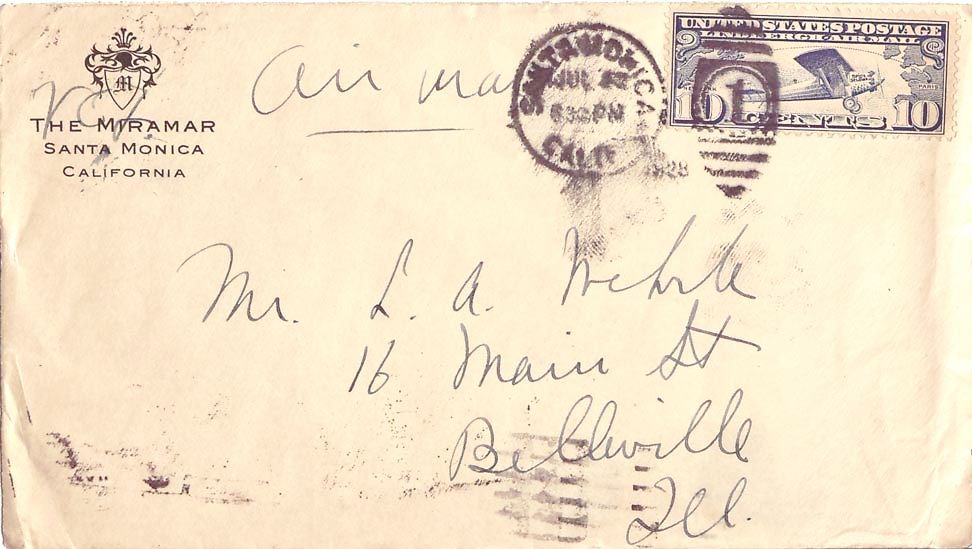 M
THE MIRAMAR
SANTA MONICA
CALIFORNIA
Air mail
SANTA MONICA
JUL
630 PM
CALIF
1928
UNITED STATES POSTAGE
LINDBERGH AIR MAIL
PARIS
10 CENTS 10
1
Mr. L. A. Wehrle
16 Main St
Belleville
Ill.